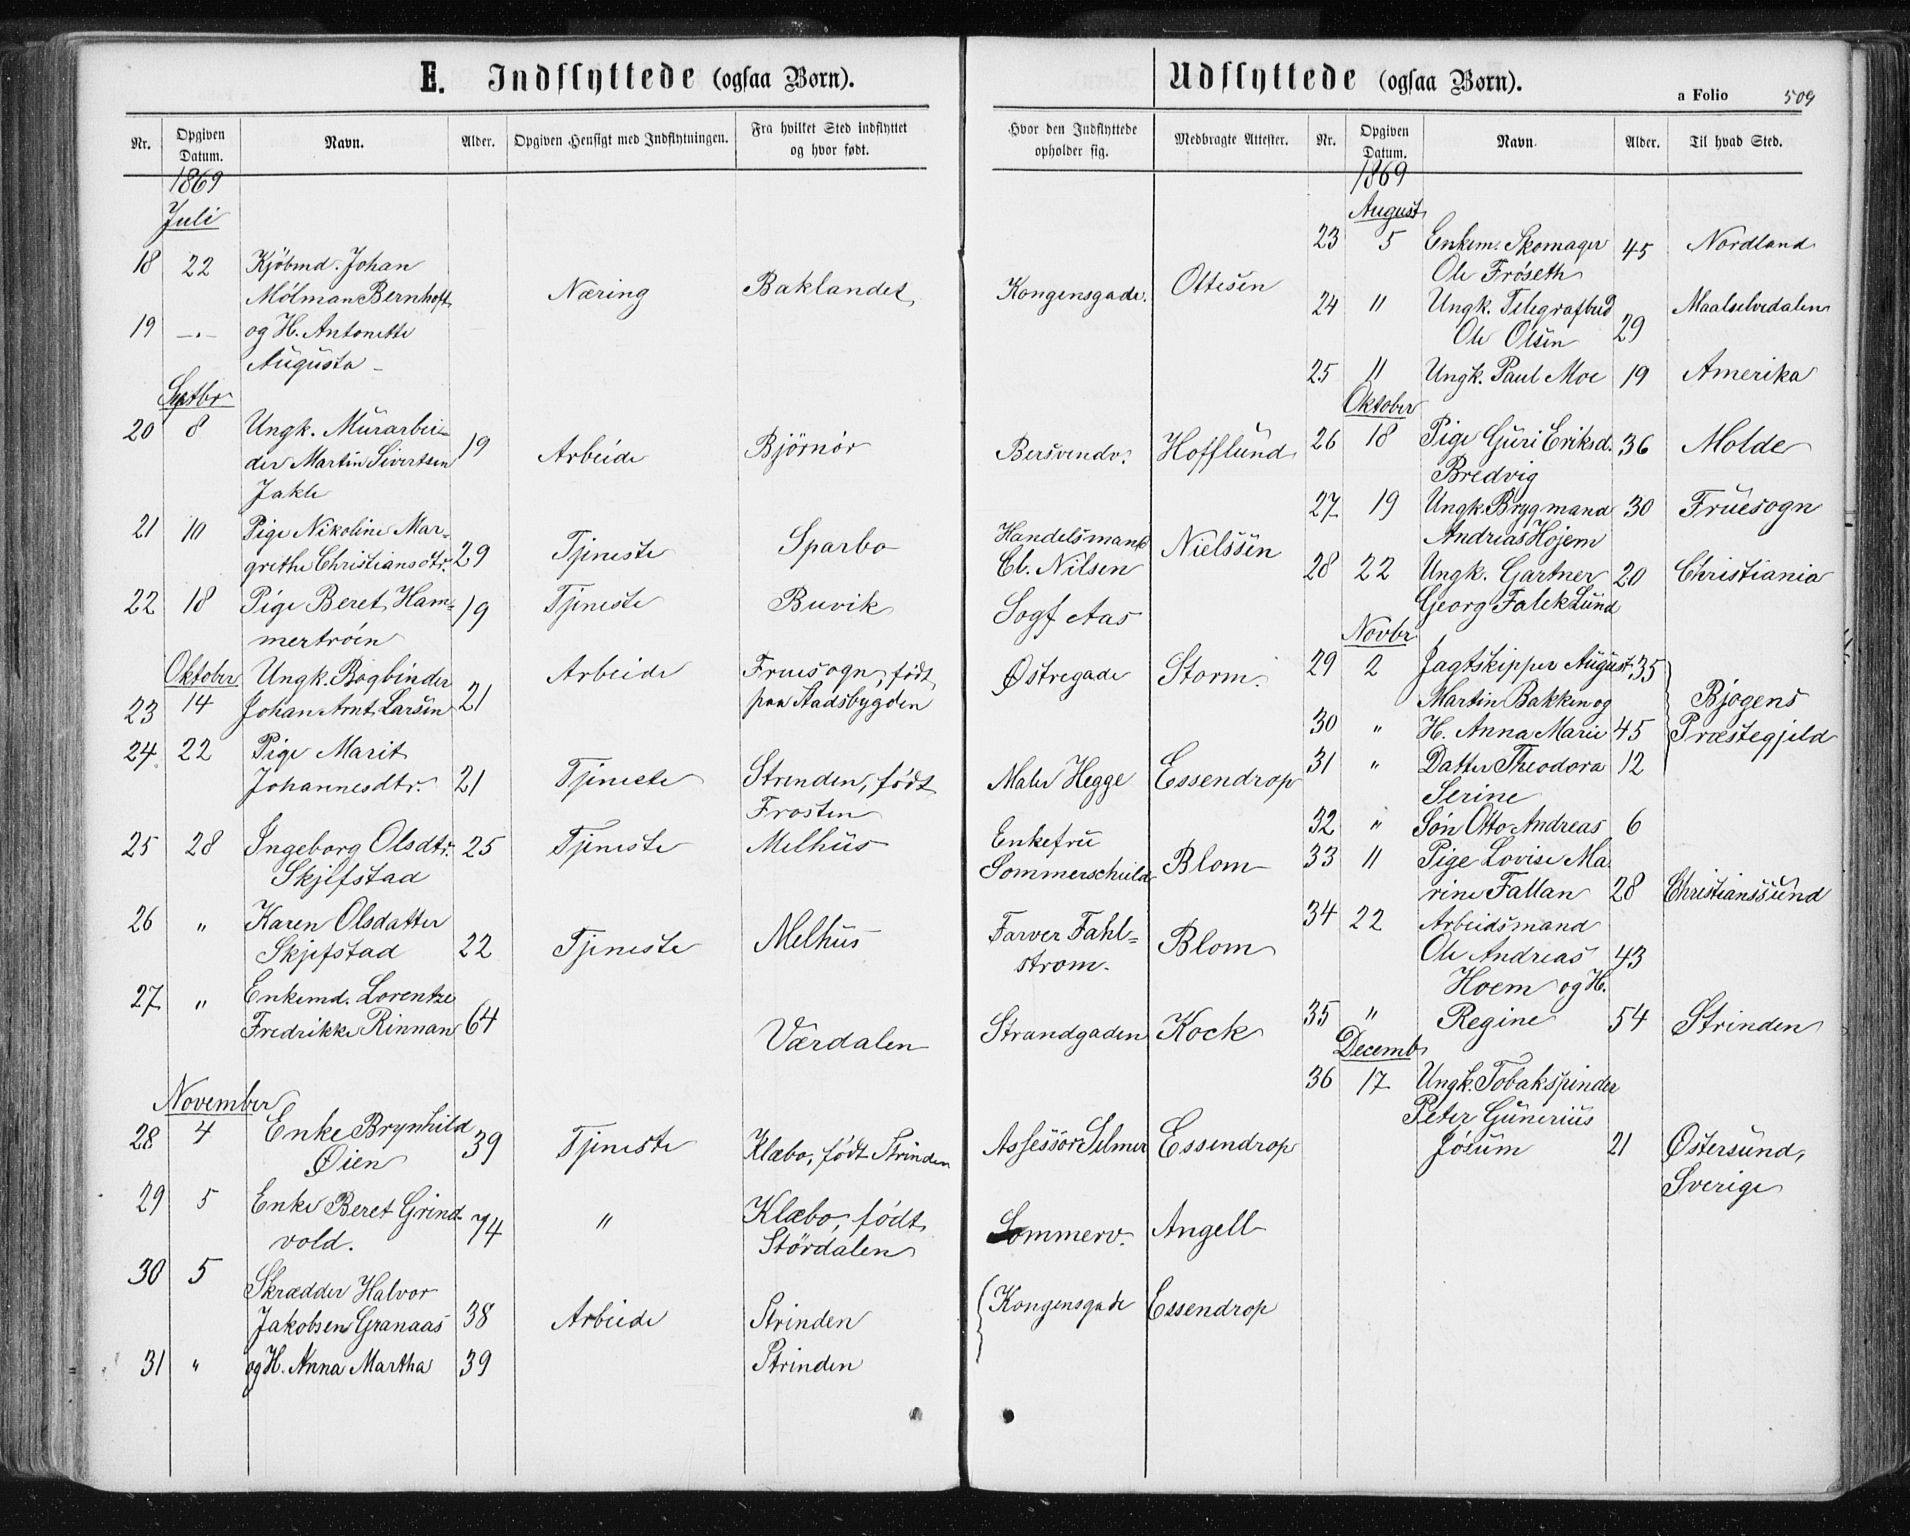 E. Indflyttede (ogsaa Børn).
Nr. Opgiven Datum. Navn. Alder. Opgiven Hensigt med Indflytningen. Fra hvilket Sted indflyttet og hvor født. Hvor den Indflyttede opholder sig. Medbragte Attester.
1869
Juli
18 22 Kjøbmd. Johan
Mölman Bernhoft Næring Baklandet Kongensgade. Ottesen
19 —.— og H. Antonette
Augusta
Septbr
20 8 Ungk. Murarbei-
der Martin Sivertsen 19 Arbeide Bjørnør Bersvendv. Hofflund
Jakle
21 10 Pige Nikoline Mar-
grethe Christiansdtr. 29 Tjeneste Sparbo Handelsmand
Cl. Nilsen Nielssen
22 18 Pige Beret Ham-
mertrøen 19 Tjeneste Buvik Sogf Aas
Oktober
23 14 Ungk. Bogbinder
Johan Arnt Larsen 21 Arbeide Fruesogn, født
paa Stadsbygden Østregade Storm.
24 22 Pige Marit
Johannesdtr. 21 Tjeneste Strinden, født
Frosten Maler Hegge Essendrop
25 28 Ingeborg Olsdtr. 25 Tjeneste Melhus Enkefru
Skjefstad Sommerschield Blom
26 " Karen Olsdatter
Skjefstad 22 Tjeneste Melhus Farver Fahl-
strom. Blom
27 " Enkemd. Lorentze
Fredrikke Rinnan 64 Værdalen Strandgaden Kock
November
28 4 Enke Brynhild
Øien 39 Tjeneste Klæbo, født Strinden Assessor Selmer Essendrop
29 5 Enke Beret Grind-
vold. 74 " Klæbo, født
Stördalen Sommerv. Angell
30 5 Skrædder Halvor
Jakobsen Granaas 38 Arbeide Strinden Kongensgade Essendrop
31 " og H. Anna Martha 39 Strinden
Udflyttede (ogsaa Børn).
a Folio 509
Nr. Opgiven Datum. Navn. Alder. Til hvad Sted.
1869
August
23 5 Enkem. Skomager
Ole Frøseth 45 Nordland
24 11 Ungk. Telegrafbud
Ole Olsen 29 Maalselvedalen
25 11 Ungk. Paul Moe 19 Amerika
Oktober
26 18 Pige Guri Eriksd. 36 Molde
Bredvig
27 19 Ungk. Bryggmand 30 Fruesogn
Andrias Hojem
28 22 Ungk. Gartner 20 Christiania
Georg Falck Lund
Novbr
29 2 Jagtskipper August 35
Martin Bakken og Bjøgens
30 " H. Anna Marie 45 Præstegjeld
31 " Datter Theodora 12
Serine
32 " Søn Otto Andreas 6
33 11 Pige Lovise Ma
rine Fallan 28 Christianssund
34 22 Arbeidsmand
Ole Andreas 43
Hoem og H.
35 " Regine 54 Strinden
Decemb
36 17 Ungk. Tobakspinder
Peter Gunerius
Jøsum 21 Østersund,
Sverige